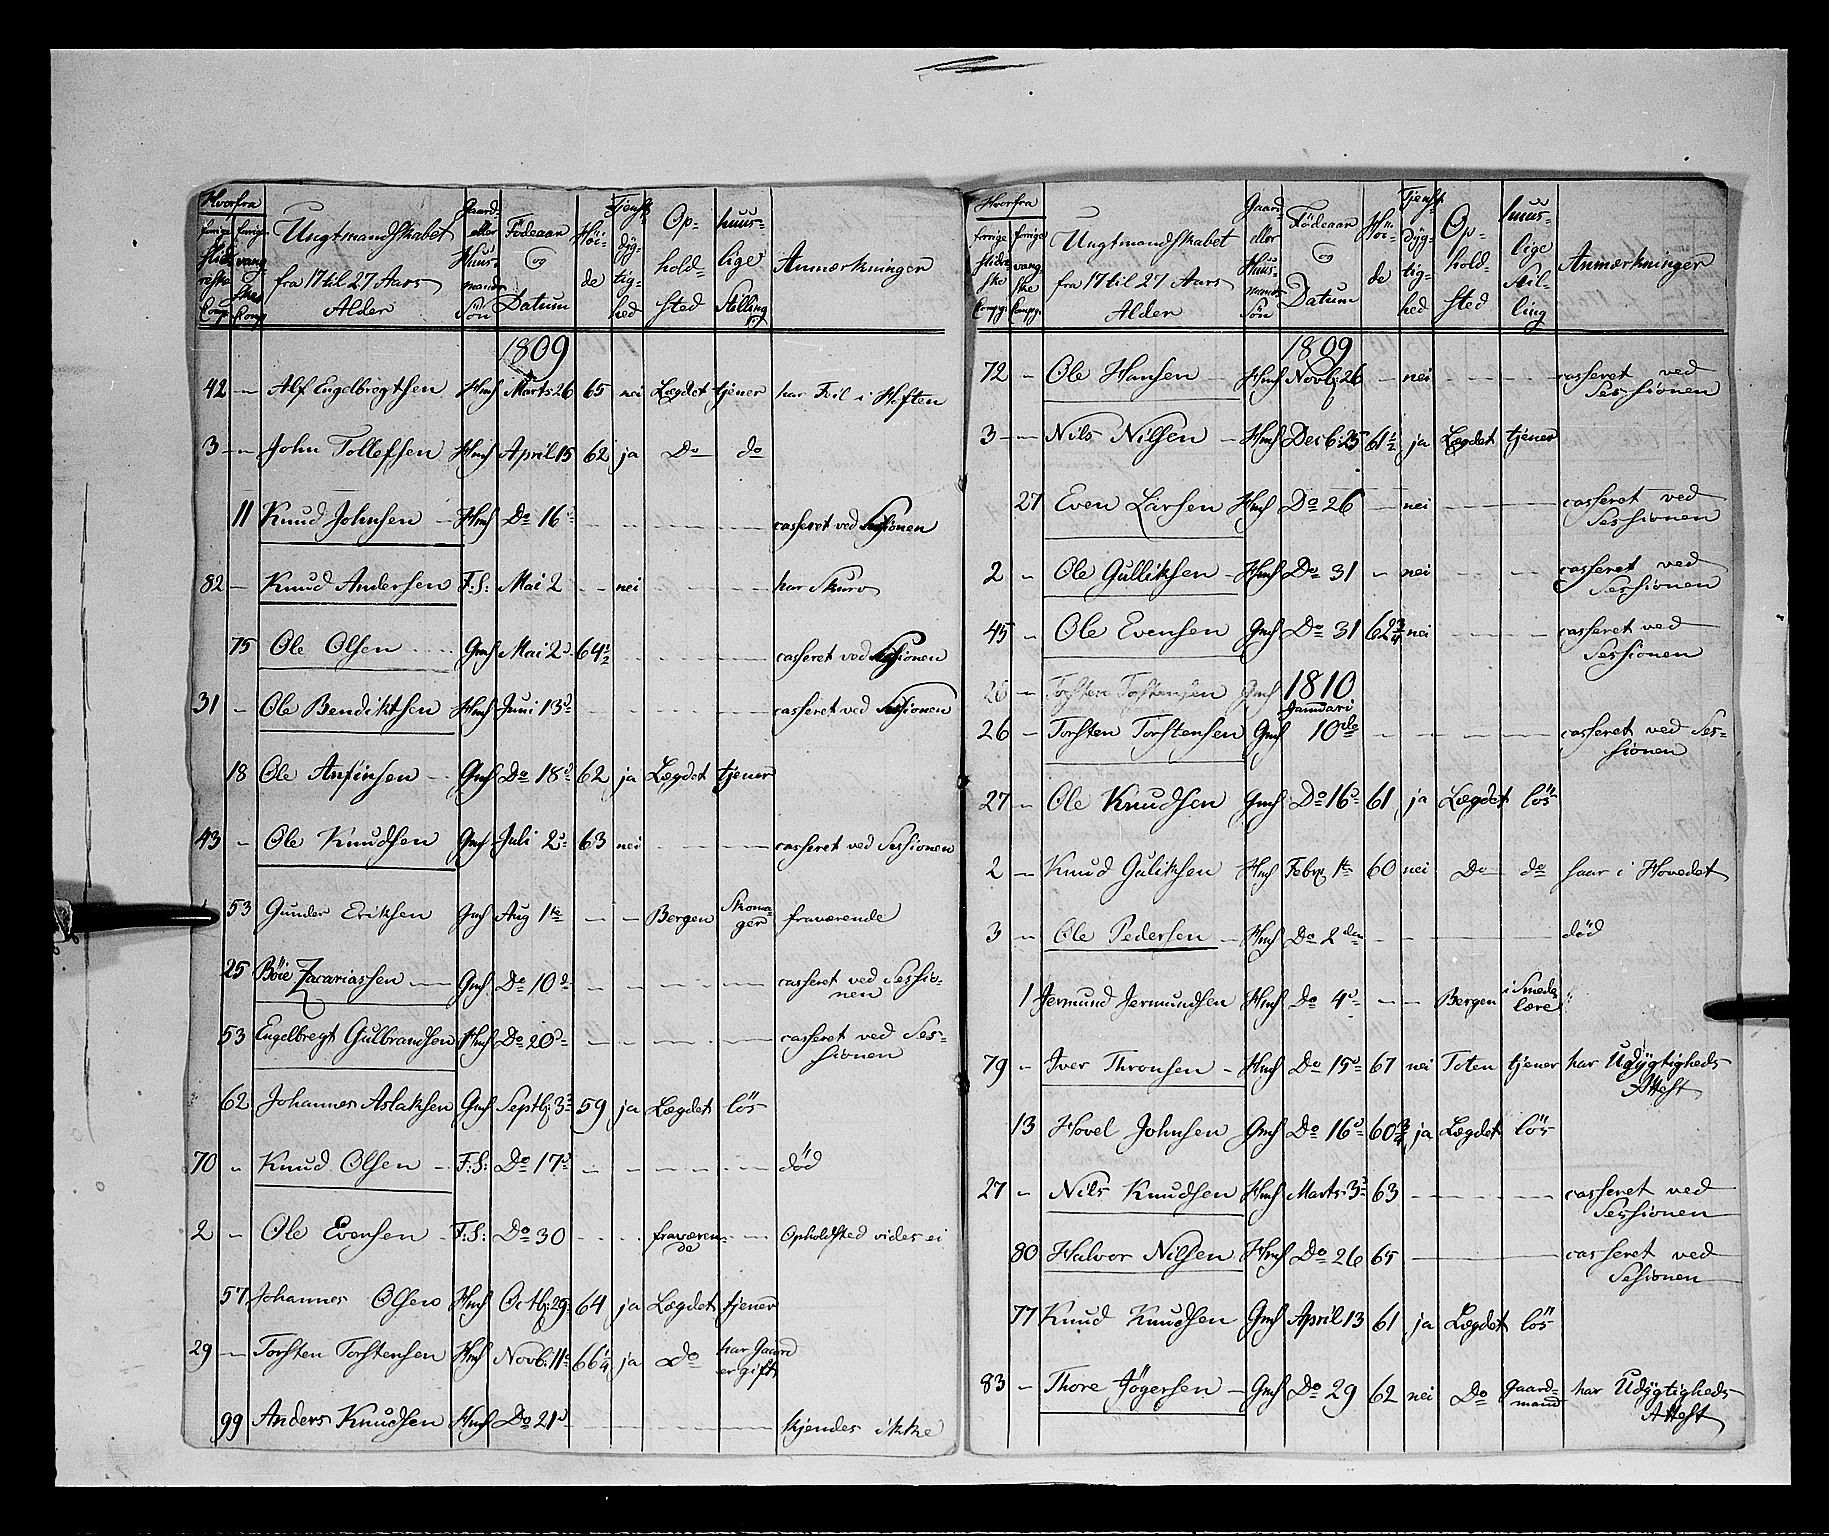 Hvorfra
forrige Slidreske Comp. | forrige vangske Comp. | Ungtmandskabet fra 17 til 27 Aars Alder | Gaard- eller Huusmands Søn | Födeaar og Datum | Höide | Tjenstdygtighed | Opholdsted | huuslige Stilling | Anmærkninger
1809
42 - Alf Engelbregtsen Hms Marts 26 65 nei Lægdet tjener har Feil i Hoften
3 - - John Tollefsen Hms April 15 62 ja Do do
11 Knud Johnsen - Hms Do 16d casseret ved Sessionen
82 - Knud Andersen F:S: Mai 2 - - nei har Skurv
75 Ole Olsen Gms Mai 2d 64 1/2 casseret ved Sessionen
31 - Ole Bendiktsen Hms Juni 13d casseret ved Sessionen
18 Ole Anfinsen - Gms Do 18d 62 ja Lægdet tjener
43 - Ole Knudsen Gms Juli 2d 63 nei casseret ved Sessionen
53 Gunder Eriksen Gms Aug 1te - - Bergen Skomager fraværende
25 Böie Zacariassen - Gms Do 10d casseret ved Sessionen
53 Engelbregt Gulbrandsen Hms Do 20d casseret ved Sessionen
62 Johannes Aslaksen Gms Septb: 3d 59 ja Lægdet lös
70 " Knud Olsen - F:S: Do 17d död
2 - Ole Evensen - F:S: Do 30 fraværende Opholdsted vides ei
57 Johannes Olsen Hms Octb: 29 64 ja Lægdet tjener
29 - Torsten Torstensen Hms Novb: 11d 66 1/4 ja Do har Gaard er gift
99 Anders Knudsen Hms Do 21d kjendes ikke
Hvorfra
forrige Slidreske Compg: | forrige vangske Compg: | Ungtmandskabet fra 17 til 27 Aars Alder | Gaard- eller Huusmands Søn | Födeaar og Datum | Höide | Tjenstdygtighed | Opholdsted | huuslige Stilling | Anmærkninger
1809
72 - Ole Hansen - Hms Novb: 26 - nei casseret ved Sessionen
3 - - Nils Nilsen - Hms Decb: 25 61 1/2 ja Lægdet tjener
27 Even Larsen Hms Do 26 - nei casseret ved Sessionen
2 - Ole Gulliksen - Hms Do 31 - nei casseret ved Sessionen
45 - Ole Evensen Gms Do 31 62 3/4 nei casseret ved Sessionen
26 - Torsten Torstensen Gms 1810
Januari
26 - Torsten Torstensen Gms 10de casseret ved Sessionen
27 - Ole Knudsen Gms Do 16d 61 ja Lægdet lös
2 - Knud Guliksen Hms Febr. 1te 60 nei Do do saar i Hovedet
3 - Ole Pedersen - Hms Do 2den död
1 Jermund Jermundsen Hms Do 4d - - Bergen i Smedelære
79 - Iver Thronsen - Hms Do 15d 67 nei Toten tjener har Udygtigheds Attest
13 Hovel Johnsen Gms Do 16d 60 3/4 ja Lægdet lös
27 - Nils Knudsen Hms Marts 3d 63 casseret ved Sessionen
80 Halvor Nilsen Hms Do 26 65 casseret ved Sesionen
77 Knud Knudsen Gms April 13 61 ja Lægdet lös
83 - Thore Jögersen - Gms Do 29 62 nei Do Gaardmand har Udygtigheds Attest